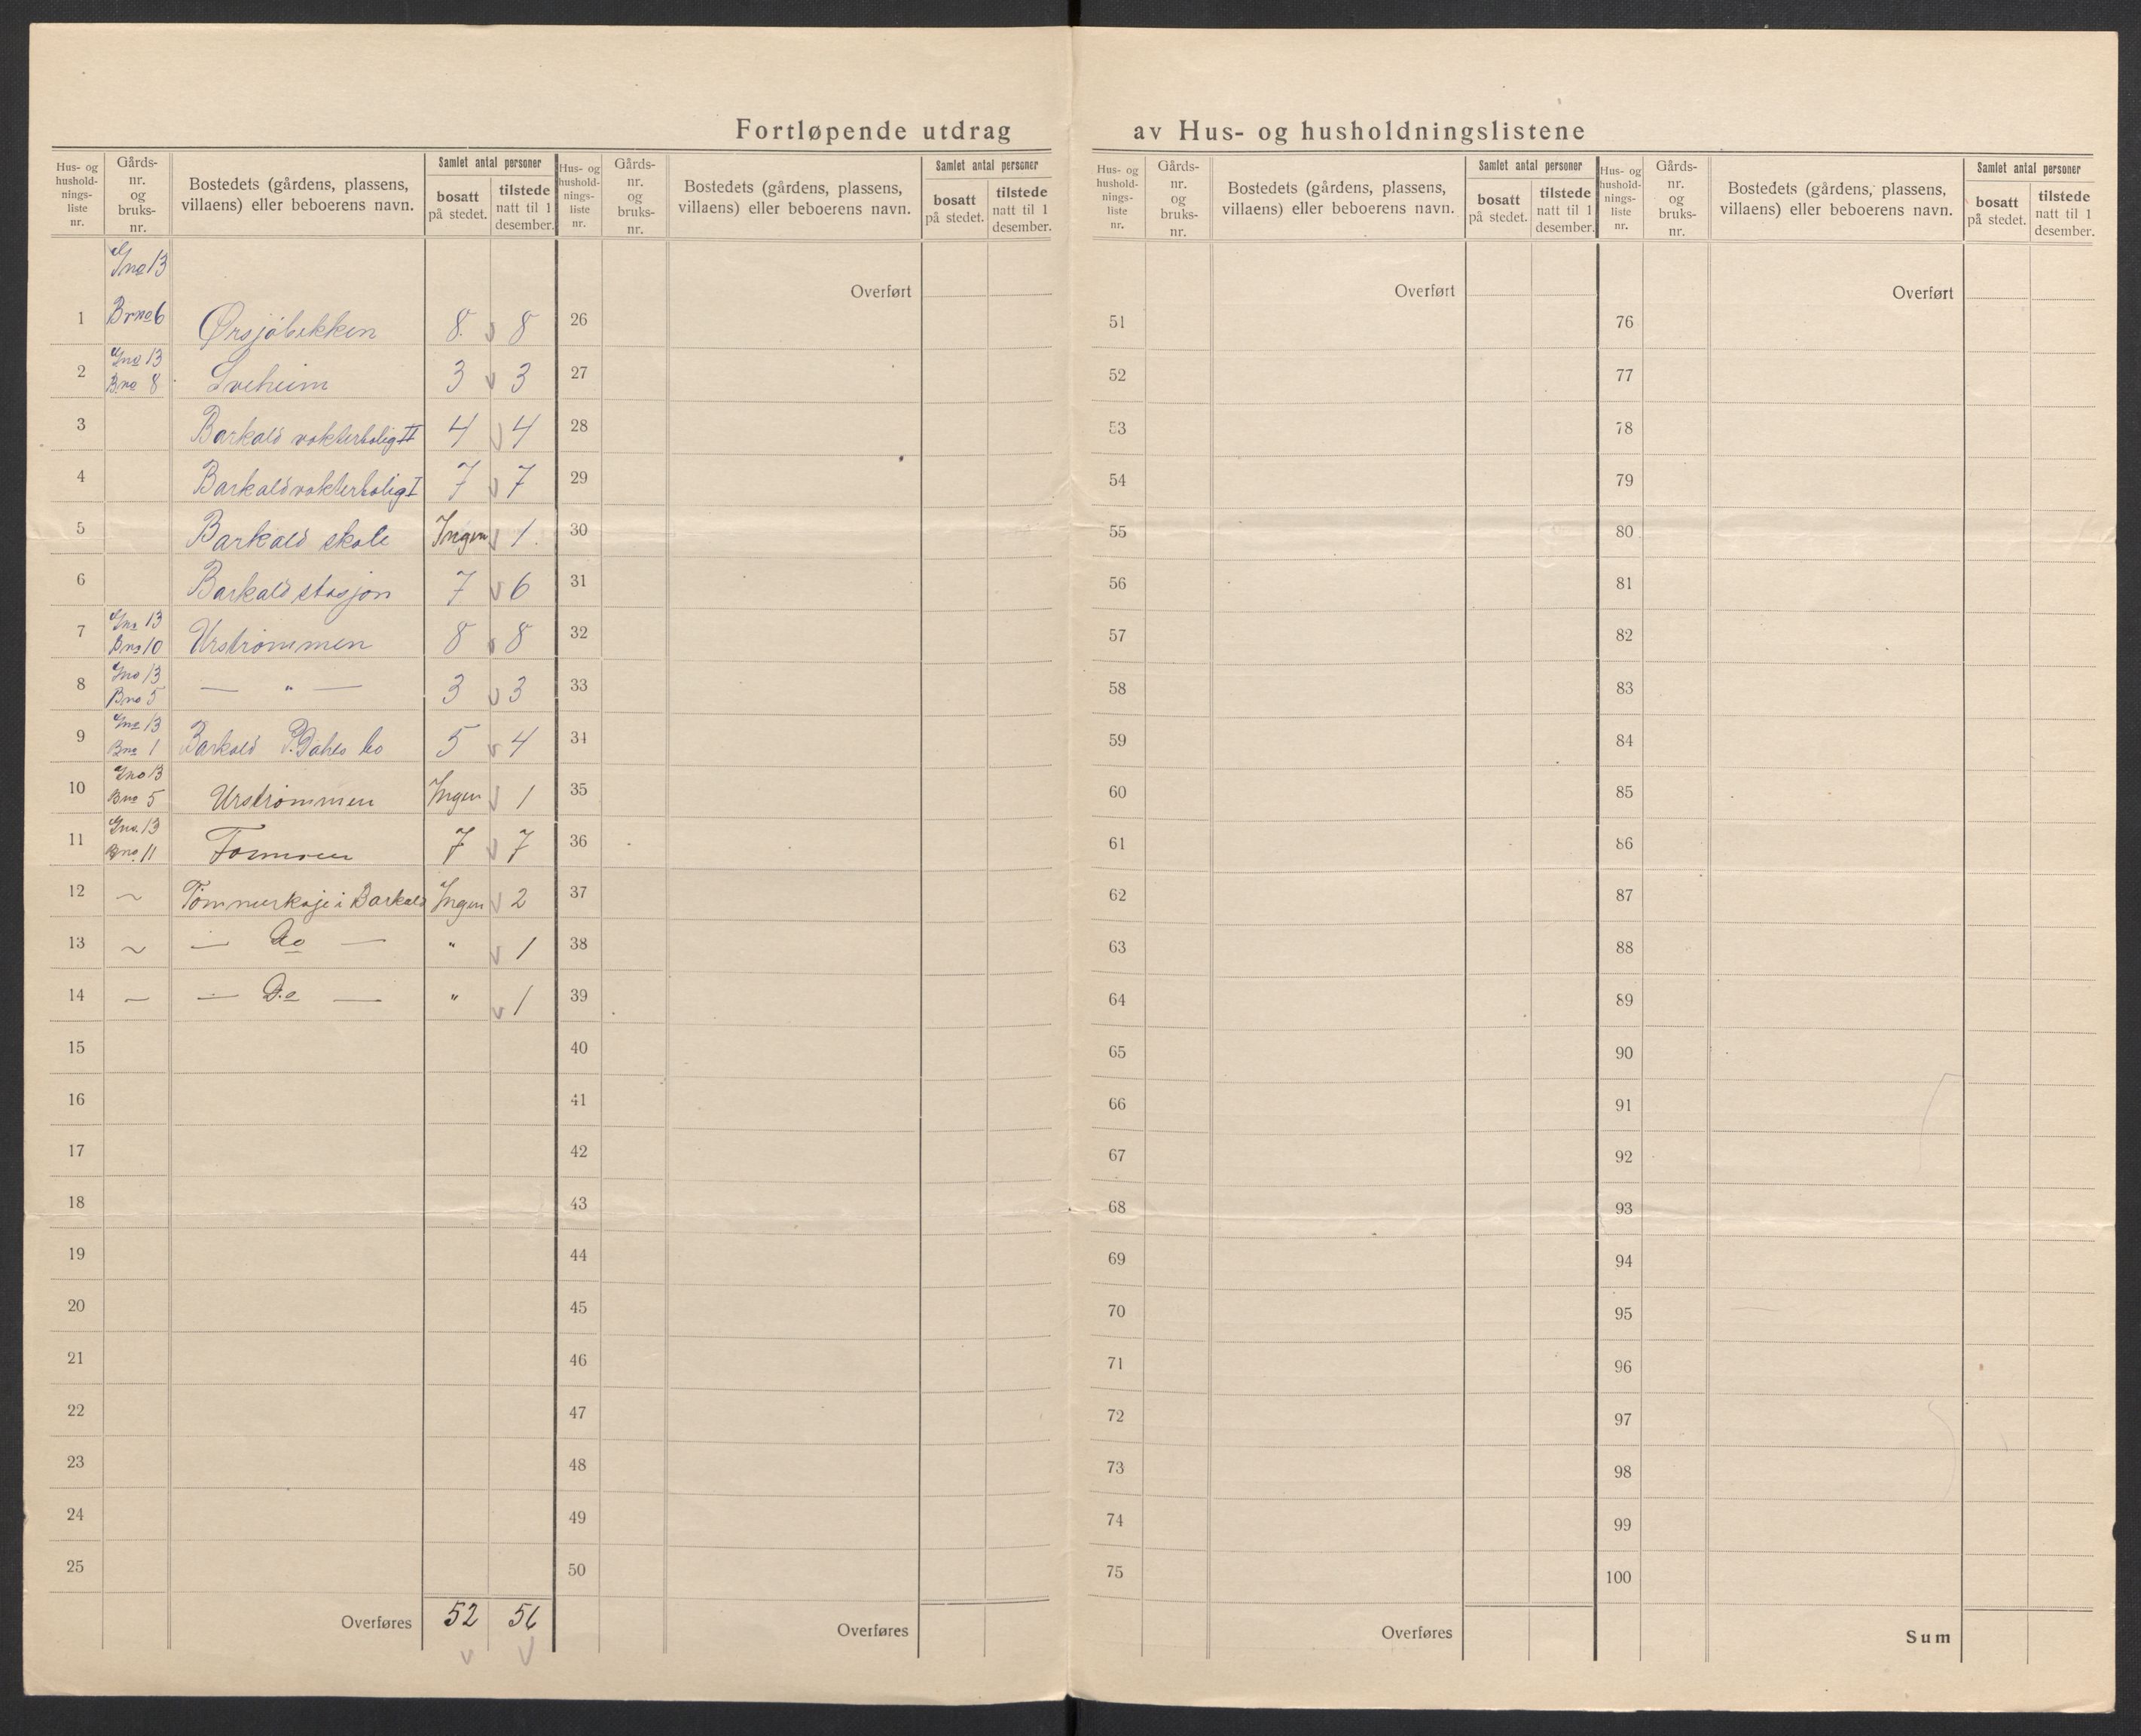 Fortløpende utdrag av Hus- og husholdningslistene
Hus- og hushold- nings- liste nr. Gårds- nr. og bruks- nr. Bostedets (gårdens, plassens, villaens) eller beboerens navn. Samlet antal personer bosatt på stedet. tilstede natt til 1 desember.
Hus- og hushold- nings- liste nr. Gårds- nr. og bruks- nr. Bostedets (gårdens, plassens, villaens) eller beboerens navn. Samlet antal personer bosatt på stedet. tilstede natt til 1 desember.
Hus- og hushold- nings- liste nr. Gårds- nr. og bruks- nr. Bostedets (gårdens, plassens, villaens) eller beboerens navn. Samlet antal personer bosatt på stedet. tilstede natt til 1 desember.
Hus- og hushold- nings- liste nr. Gårds- nr. og bruks- nr. Bostedets (gårdens, plassens, villaens) eller beboerens navn. Samlet antal personer bosatt på stedet. tilstede natt til 1 desember.
Gno 13
Overført Overført Overført
1 Brno 6 Ørsjøbekken 8 v 8 26 51 76
Gno 13
2 Bno 8 Sveheim 3 v 3 27 52 77
3 Barkald vokterbolig II 4 v 4 28 53 78
4 Barkald vokterbolig I 7 v 7 29 54 79
5 Barkald skole Ingen v 1 30 55 80
6 Barkald stasjon 7 v 6 31 56 81
Gno 13
7 Bno 10 Urstrømmen 8 v 8 32 57 82
Gno 13
8 Bno 5 — " — 3 v 3 33 58 83
Gno 13
9 Bno 1 Barkald P. Dahls bo 5 v 4 34 59 84
Gno 13
10 Bno 5 Urstrømmen Ingen v 1 35 60 85
Gno. 13
11 Bno. 11 7 v 7 36 61 86
12 ~ Tømmerkoje i Barkald Ingen v 2 37 62 87
13 ~ — Do — " v 1 38 63 88
14 ~ — Do — " v 1 39 64 89
15 40 65 90
16 41 66 91
17 42 67 92
18 43 68 93
19 44 69 94
20 45 70 95
21 46 71 96
22 47 72 97
23 48 73 98
24 49 74 99
25 50 75 100
Overføres 52 56 Overføres Overføres Sum
v v